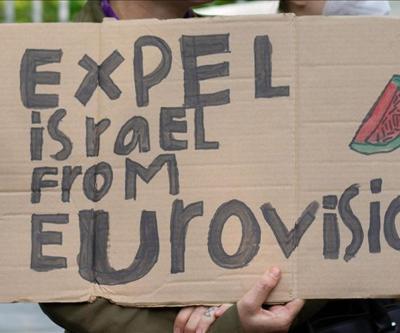 EXPEL
israEL
From
EUrovisio